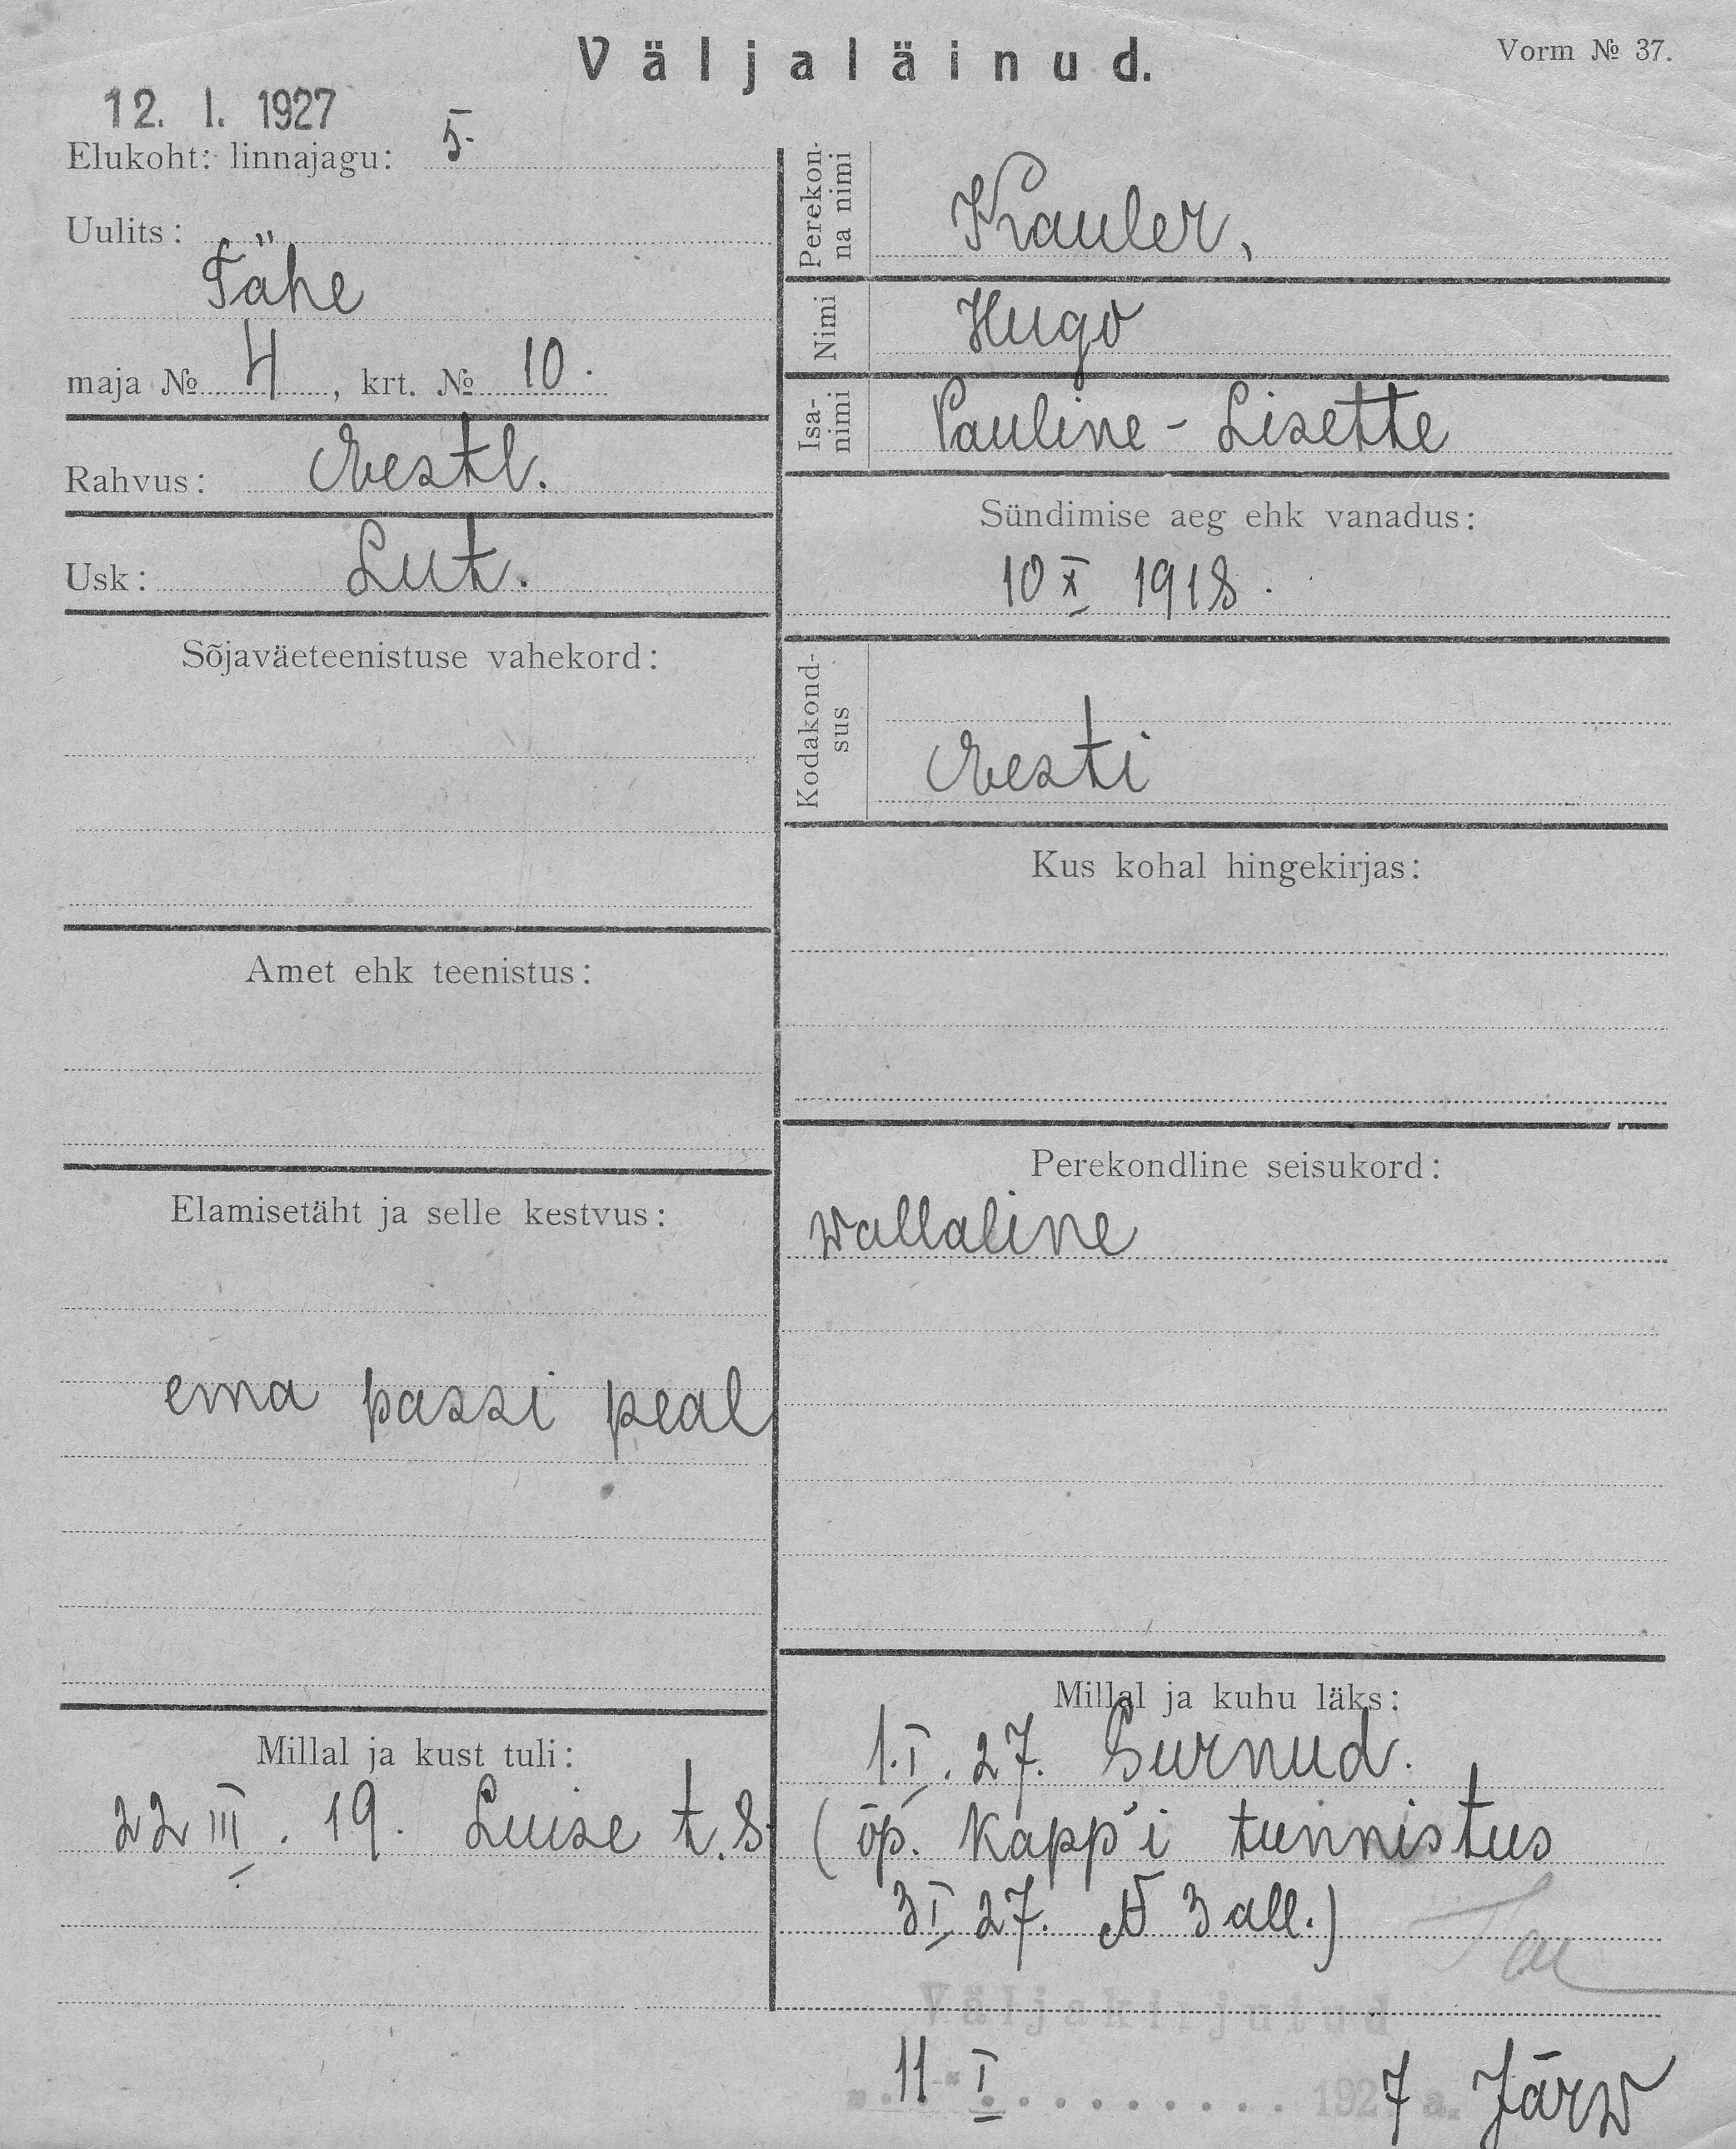 Väljaläinud.
Vorm № 37.
12. I. 1927
Elukoht: linnajagu: 5.
Uulits:
Tähe
maja № 4, krt. № 10.
Rahvus: Eestl.
Usk: Lut.
Sõjaväeteenistuse vahekord:
Amet ehk teenistus:
Elamisetäht ja selle kestvus:
ema passi peal
Millal ja kust tuli:
22 III. 19. Luise t. 8
Perekon-
na nimi
Krauler,
Nimi
Hugo
Isa-
nimi
Pauline - Lisette
Sündimise aeg ehk vanadus:
10 X 1918.
Kodakond-
sus
Eesti
Kus kohal hingekirjas:
Perekondline seisukord:
wallaline
Millal ja kuhu läks:
1.I.27. Surnud.
(õp. Kapp'i tunnistus
3 I 27. № 3 all.)
Väljakirjutud
11 I 1927 a. Järw